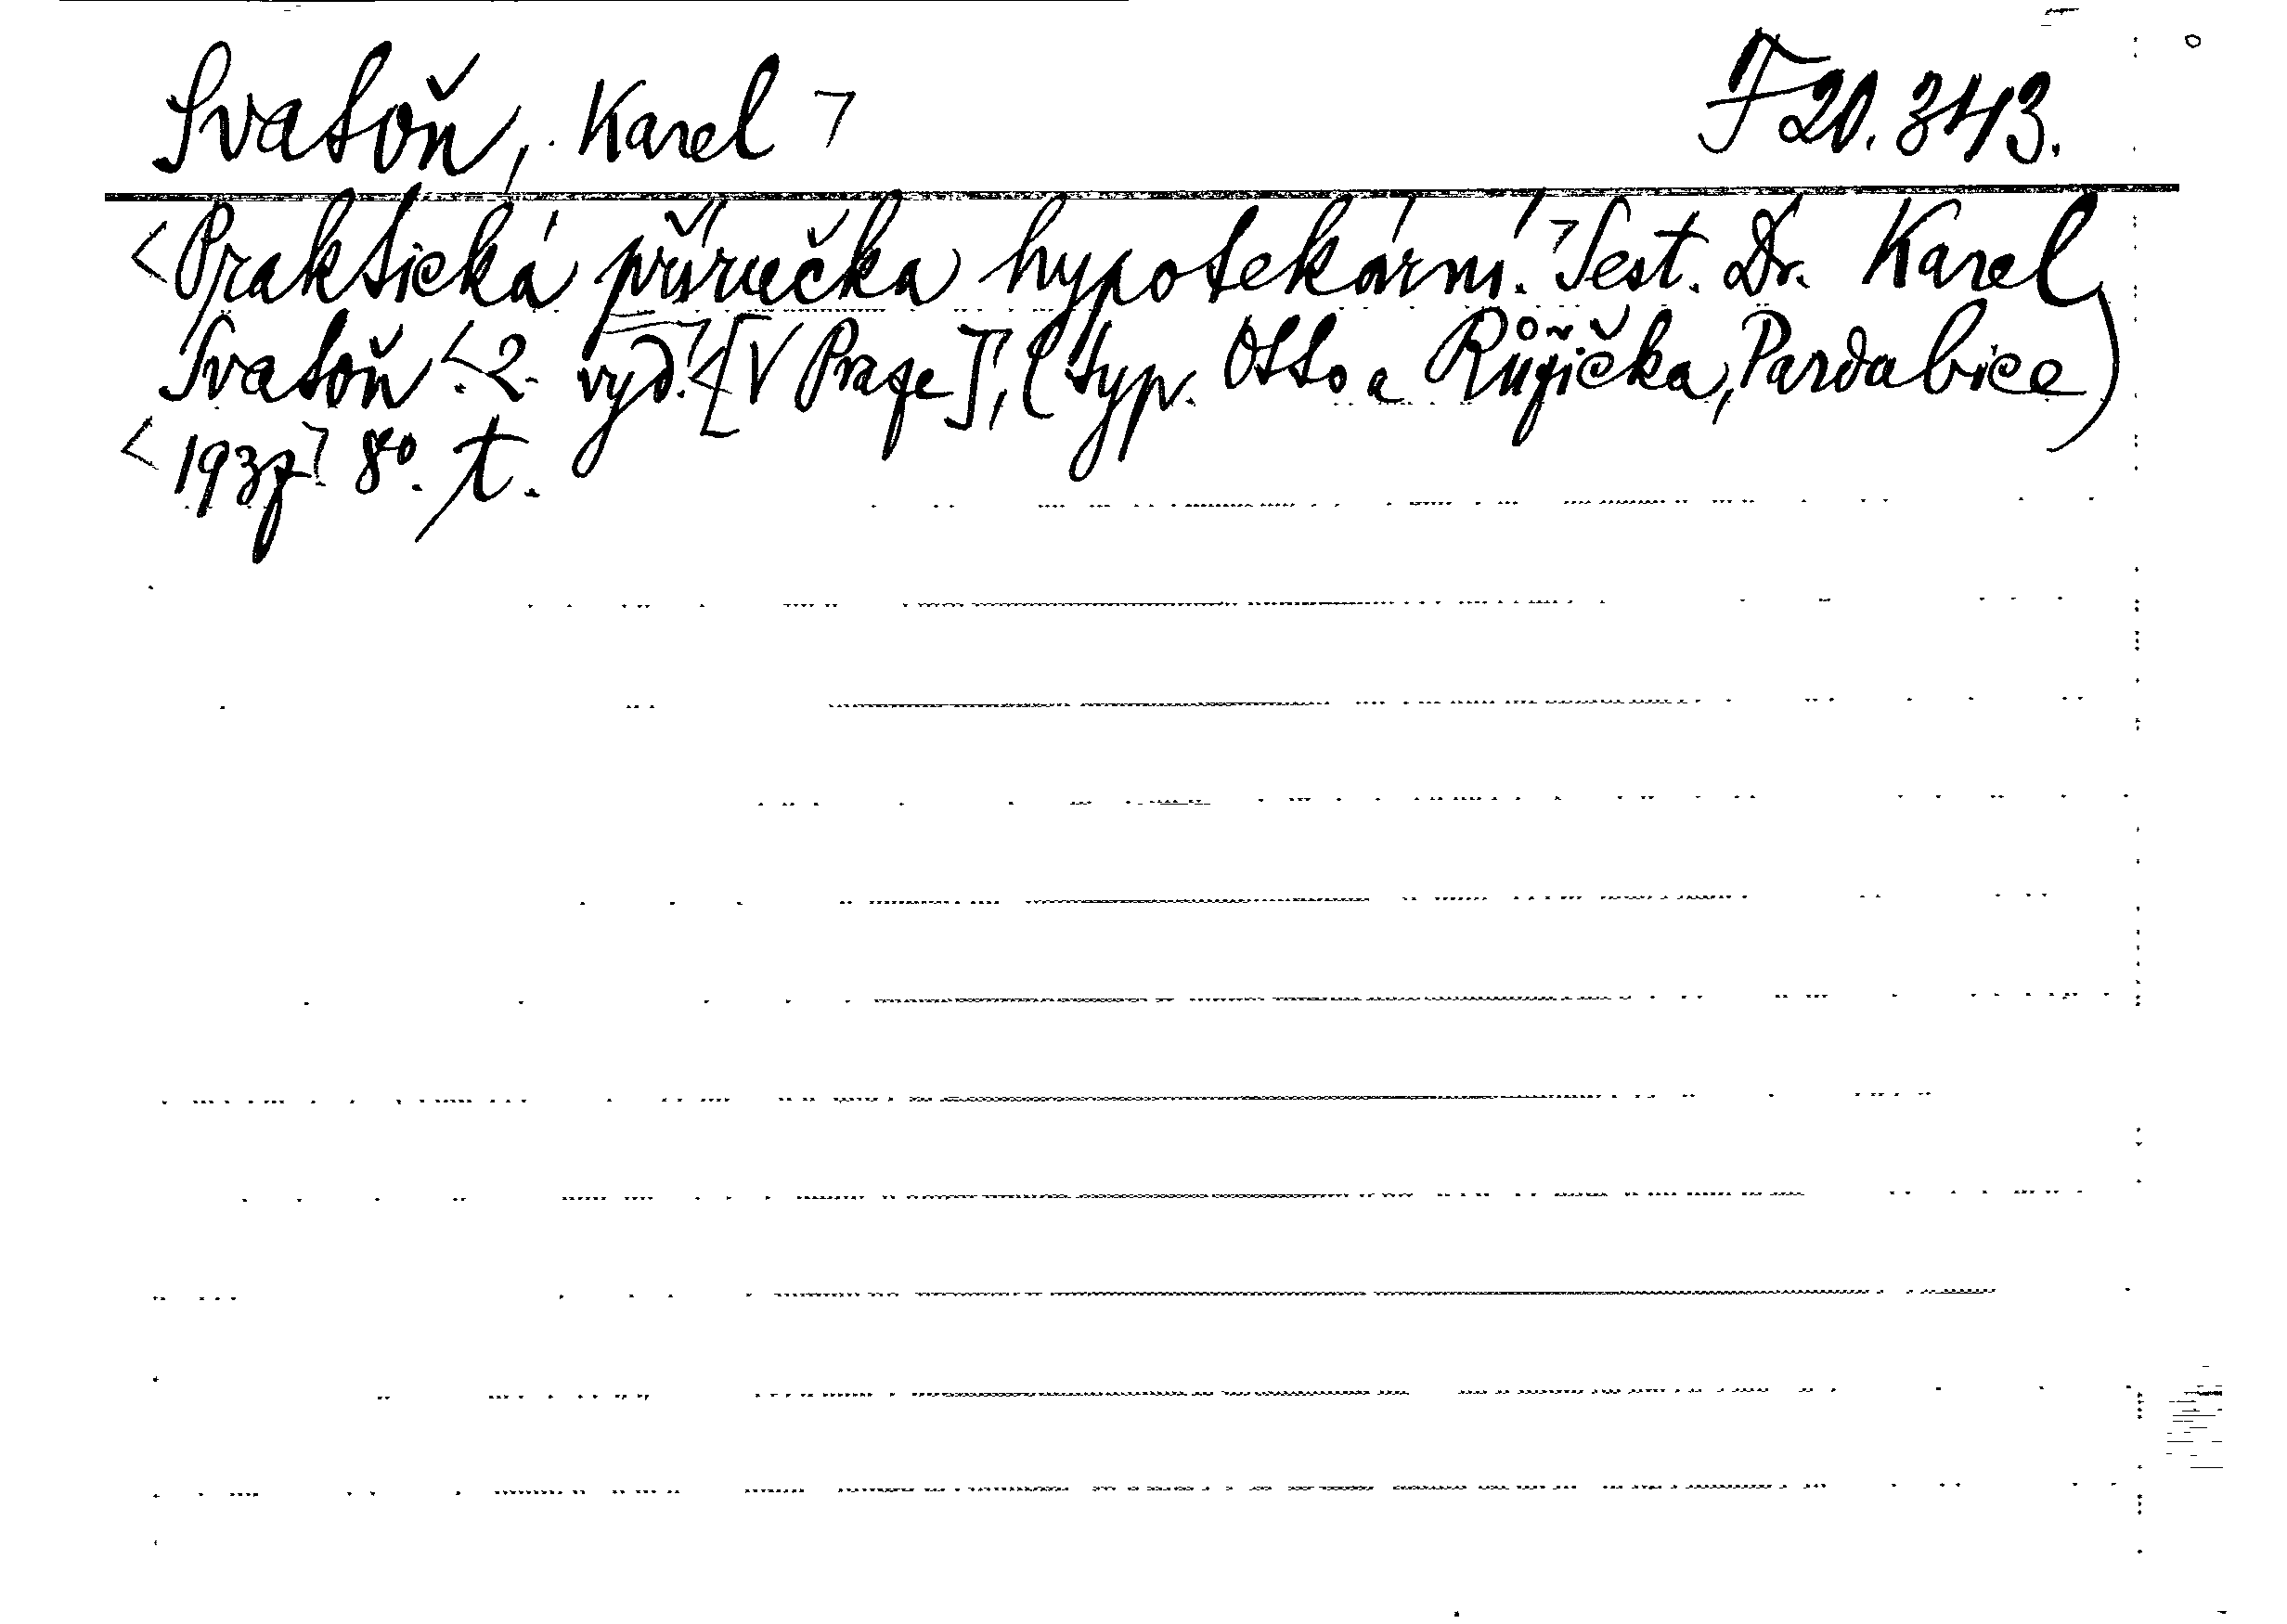 Svatoň, Karel ㄱ F 20.343.
<Praktická příručka hypotekární.ㄱ Sest. Dr. Karel
Svatoň. <2. vyd.ㄱ <[V Praze]ㄱ, (typ. Otto a Růžička, Pardubice)
<1937ㄱ 8°. t.